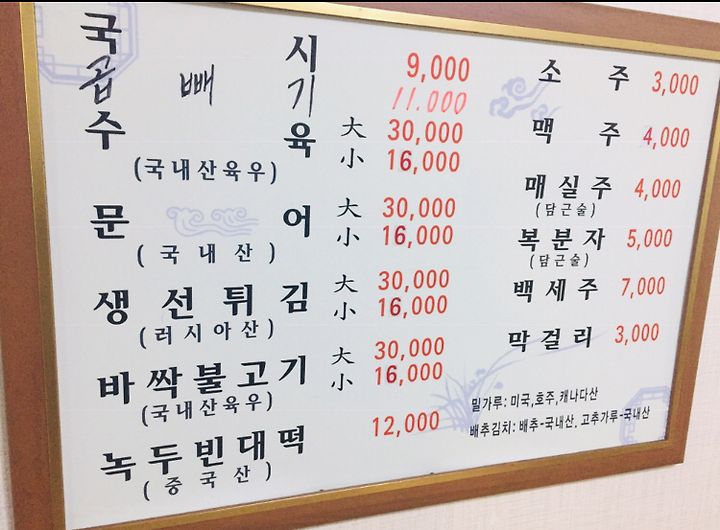 국 시 9,000
곱 빼 기 11.000
수 육 大 30,000
小 16,000
(국내산육우)
문 어 大 30,000
小 16,000
(국내산)
생선튀김 大 30,000
小 16,000
(러시아산)
바싹불고기 大 30,000
小 16,000
(국내산육우)
녹두빈대떡 12,000
(중국산)
소 주 3,000
맥 주 4,000
매실주 4,000
(담근술)
복분자 5,000
(담근술)
백세주 7,000
막걸리 3,000
밀가루: 미국,호주,캐나다산
배추김치: 배추-국내산, 고추가루-국내산